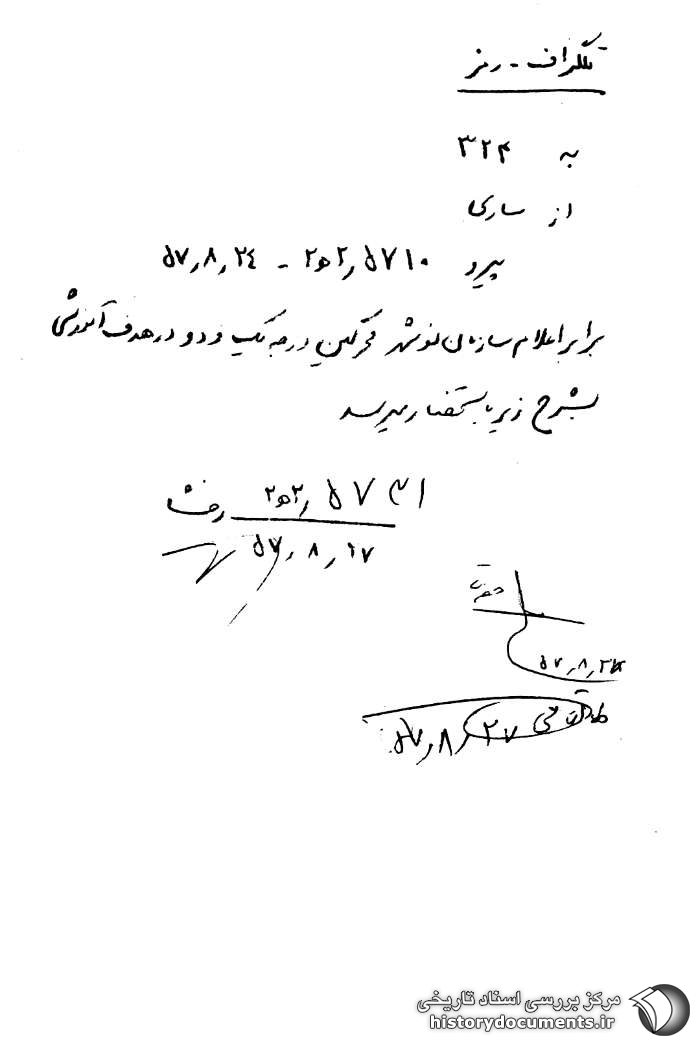 تلگراف - رمز
به ۳۲۴
از ساری
پیرو ۵۷۱۰/۲ه۲ - ۵۷/۸/۲۴
برابر اعلام سازمان نوشهر محرکین درجه یک و دو در هدف آموزشی
بشرح زیر باستحضار میرسد
۵۷۴۱/۲ه۲
۵۷/۸/۲۷
۵۷/۸/۲۷
۵۷/۸/۲۷
مرکز بررسی اسناد تاریخی
historydocuments.ir